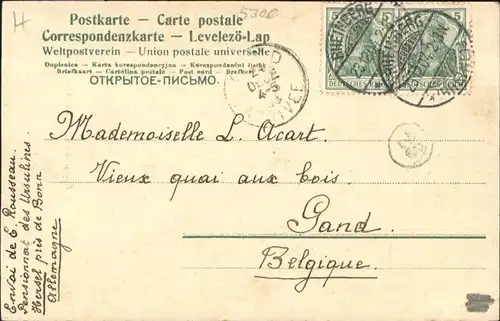 5300
Postkarte - Carte postale
Correspondenzkarte - Levelező-Lap
Weltpostverein - Union postale universelle
Dopisnice - Karta korespondencyjna - Korespondenční lístek
Briefkaart - Cartolina postale - Post card - Brefkort
ОТКРЫТОЕ-ПИСЬМО.
5 5
DEUTSCHES REICH
Mademoiselle L. Acart.
Vieux quai aux bois.
Gand.
Belgique.
Envoi de E. Rousseau.
Pensionnat des Ursulines.
Hersel près de Bonn
Allemagne